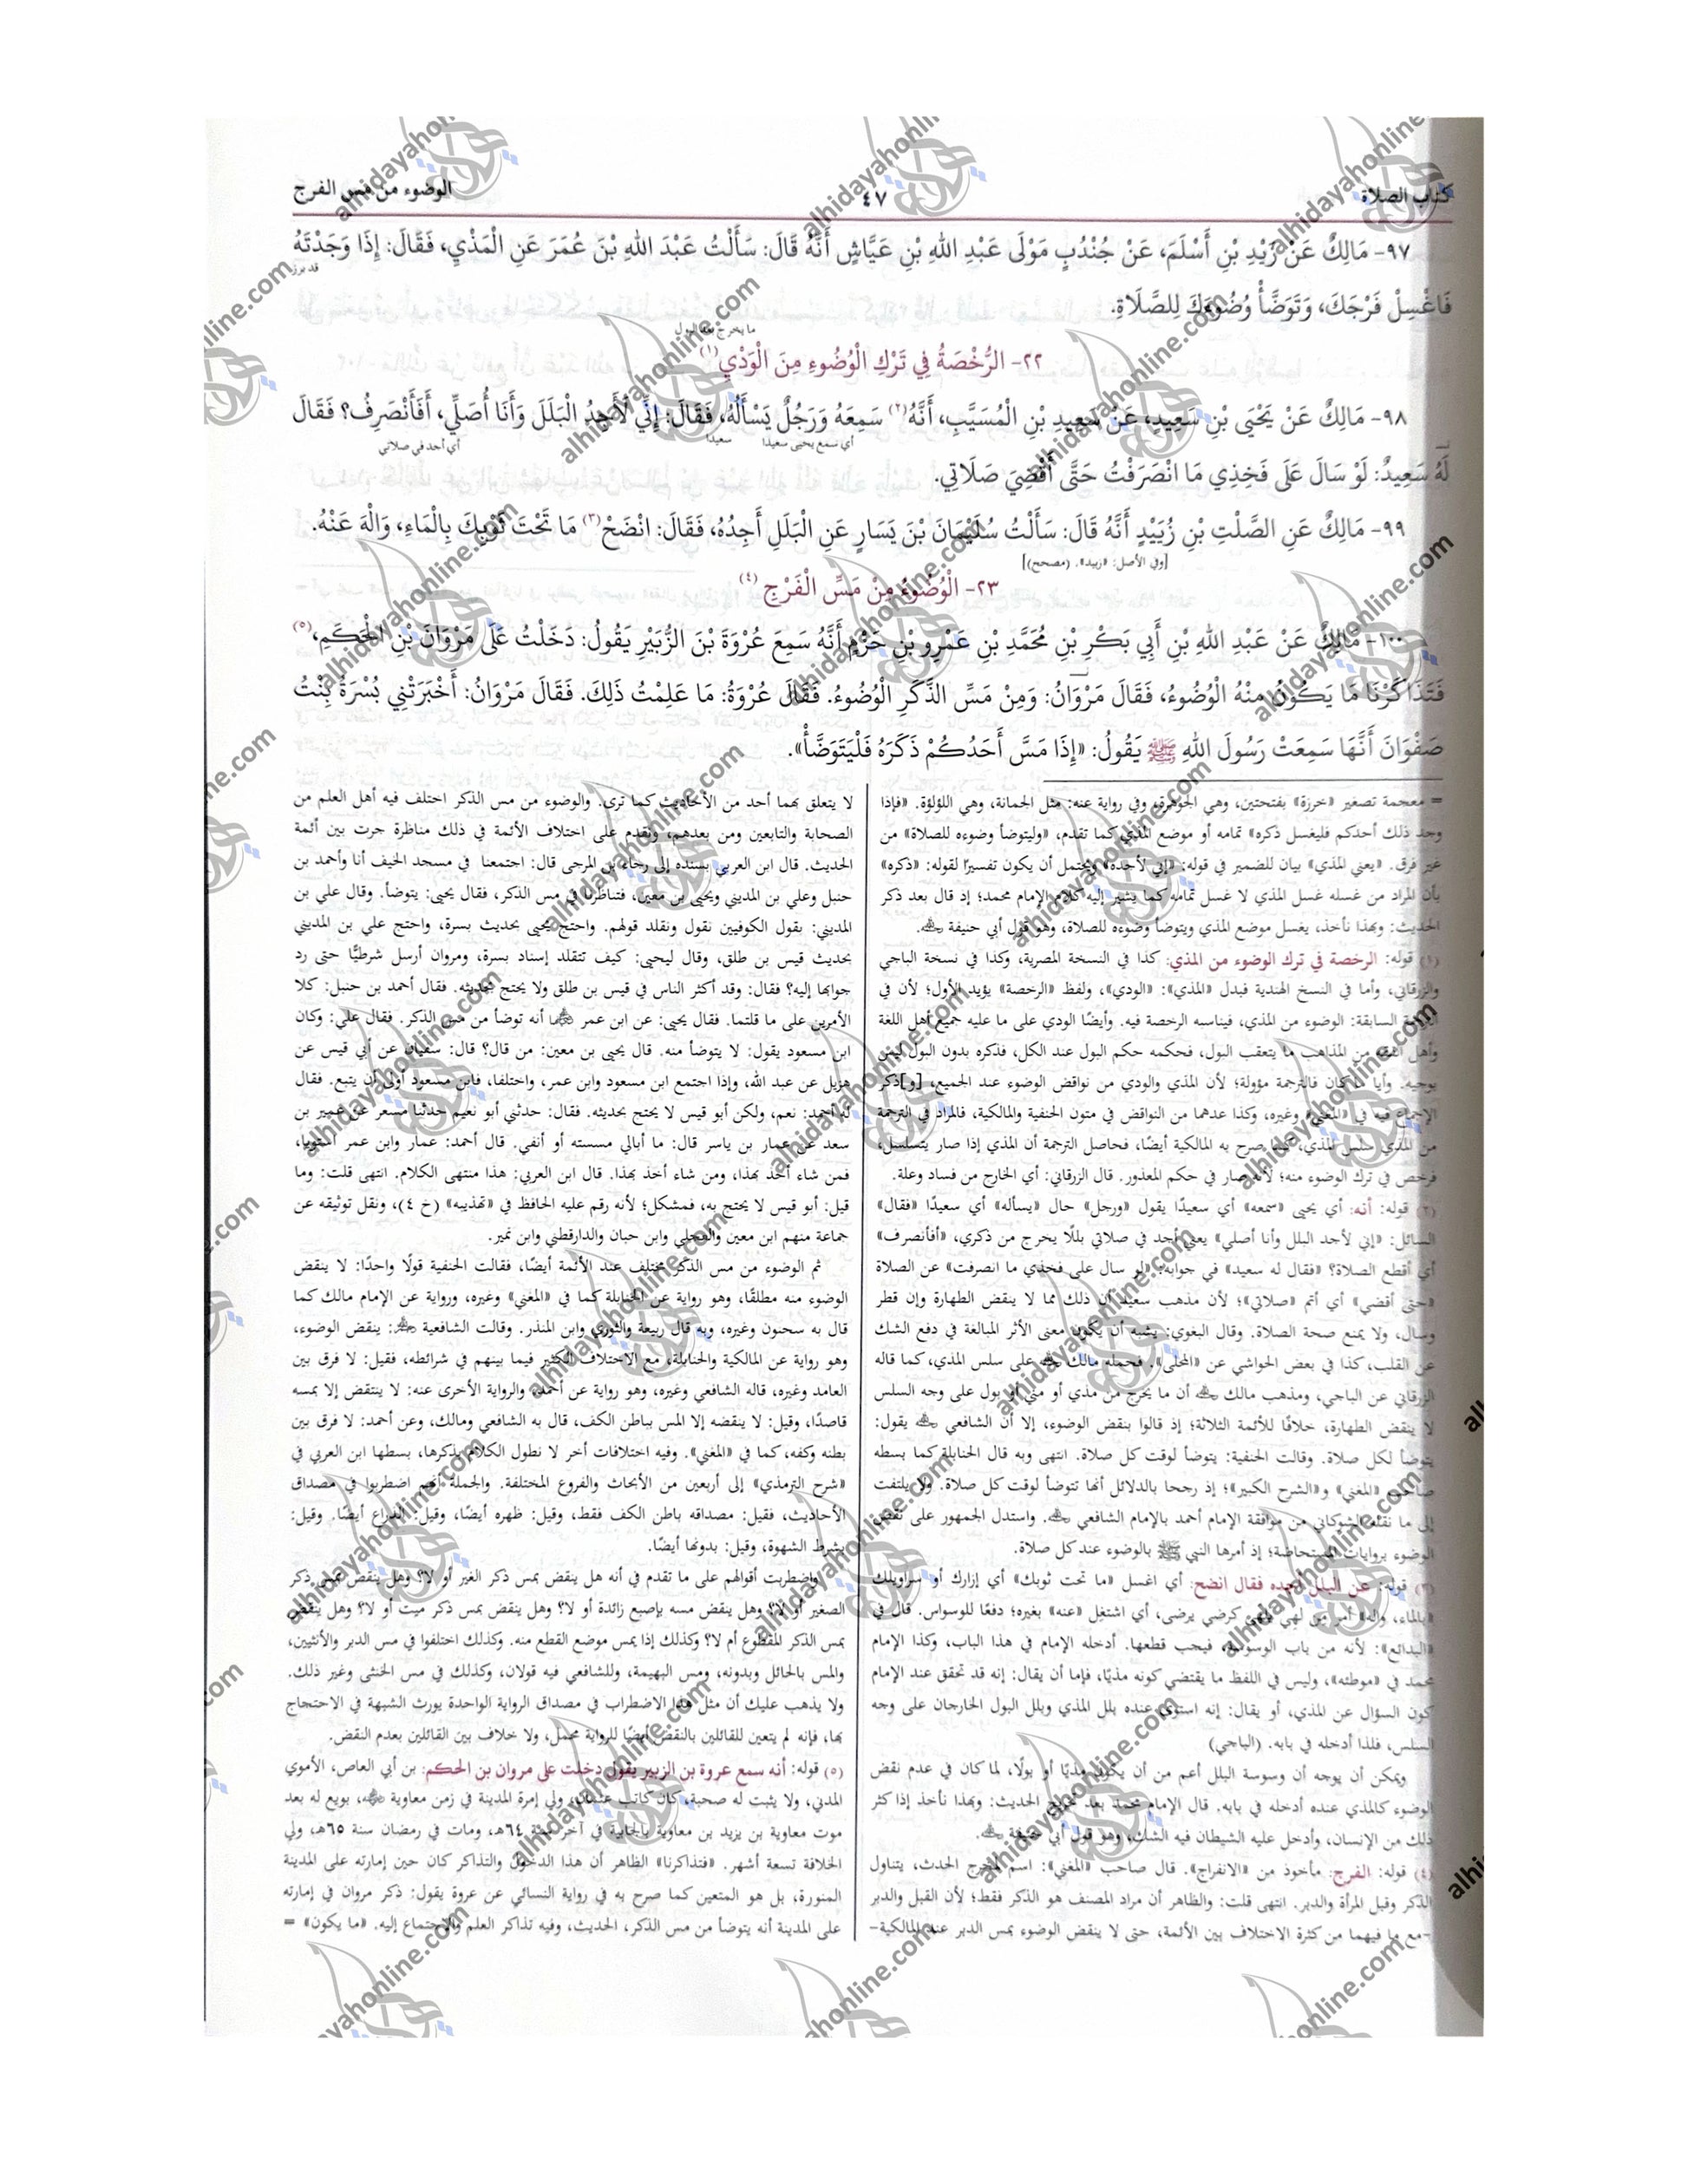 كتاب الصلاة
٤٧
الوضوء من مس الفرج
٩٧- مَالِكٌ عَنْ زَيْدِ بْنِ أَسْلَمَ، عَنْ جُنْدُبٍ مَوْلَى عَبْدِ اللهِ بْنِ عَيَّاشٍ أَنَّهُ قَالَ: سَأَلْتُ عَبْدَ اللهِ بْنَ عُمَرَ عَنِ الْمَذْيِ، فَقَالَ: إِذَا وَجَدْتَهُ
فَاغْسِلْ فَرْجَكَ، وَتَوَضَّأْ وُضُوءَكَ لِلصَّلَاةِ.
ما يخرج بعد البول
٢٢- الرُّخْصَةُ فِي تَرْكِ الْوُضُوءِ مِنَ الْوَدْيِ(١)
٩٨- مَالِكٌ عَنْ يَحْيَى بْنِ سَعِيدٍ، عَنْ سَعِيدِ بْنِ الْمُسَيَّبِ، أَنَّهُ(٢) سَمِعَهُ وَرَجُلٌ يَسْأَلُهُ، فَقَالَ: إِنِّي لَأَجِدُ الْبَلَلَ وَأَنَا أُصَلِّي، أَفَأَنْصَرِفُ؟ فَقَالَ
أي سمع يحيى سعيدا سعيدا أي أحد في صلاتي
لَهُ سَعِيدٌ: لَوْ سَالَ عَلَى فَخِذِي مَا انْصَرَفْتُ حَتَّى أَقْضِيَ صَلَاتِي.
٩٩- مَالِكٌ عَنِ الصَّلْتِ بْنِ زُيَيْدٍ أَنَّهُ قَالَ: سَأَلْتُ سُلَيْمَانَ بْنَ يَسَارٍ عَنِ الْبَلَلِ أَجِدُهُ، فَقَالَ: انْضَحْ(٣) مَا تَحْتَ ثَوْبِكَ بِالْمَاءِ، وَالْهَ عَنْهُ.
[وفي الأصل: «زبيد». (مصحح)]
٢٣- الْوُضُوءُ مِنْ مَسِّ الْفَرْجِ(٤)
١٠٠- مَالِكٌ عَنْ عَبْدِ اللهِ بْنِ أَبِي بَكْرِ بْنِ مُحَمَّدِ بْنِ عَمْرِو بْنِ حَزْمٍ أَنَّهُ سَمِعَ عُرْوَةَ بْنَ الزُّبَيْرِ يَقُولُ: دَخَلْتُ عَلَى مَرْوَانَ بْنِ الْحَكَمِ،(٥)
فَتَذَاكَرْنَا مَا يَكُونُ مِنْهُ الْوُضُوءُ، فَقَالَ مَرْوَانُ: وَمِنْ مَسِّ الذَّكَرِ الْوُضُوءُ. فَقَالَ عُرْوَةُ: مَا عَلِمْتُ ذَلِكَ. فَقَالَ مَرْوَانُ: أَخْبَرَتْنِي بُسْرَةُ بِنْتُ
صَفْوَانَ أَنَّهَا سَمِعَتْ رَسُولَ اللهِ ﷺ يَقُولُ: «إِذَا مَسَّ أَحَدُكُمْ ذَكَرَهُ فَلْيَتَوَضَّأْ».
= معجمة تصغير «خرزة» بفتحتين، وهي الجوهرة، وفي رواية عنه: مثل الجمانة، وهي اللؤلؤة. «فإذا
وجد ذلك أحدكم فليغسل ذكره» تمامه أو موضع المذي كما تقدم، «وليتوضأ وضوءه للصلاة» من
غير فرق. «يعني المذي» بيان للضمير في قوله: «إني لأجده» ويحتمل أن يكون تفسيرًا لقوله: «ذكره»
بأن المراد من غسله غسل المذي لا غسل تمامه كما يشير إليه كلام الإمام محمد؛ إذ قال بعد ذكر
الحديث: وبهذا نأخذ، يغسل موضع المذي ويتوضأ وضوءه للصلاة، وهو قول أبي حنيفة.
(١) قوله: الرخصة في ترك الوضوء من المذي: كذا في النسخة المصرية، وكذا في نسخة الباجي
والزرقاني، وأما في النسخ الهندية فبدل «المذي»: «الودي»، ولفظ «الرخصة» يؤيد الأول؛ لأن في
السابقة: الوضوء من المذي، فيناسبه الرخصة فيه. وأيضًا الودي على ما عليه جميع أهل اللغة
وأهل الفقه من المذاهب ما يتعقب البول، فحكمه حكم البول عند الكل، فذكره بدون البول ليس
بوجيه. وأيا ما كان فالترجمة مؤولة؛ لأن المذي والودي من نواقض الوضوء عند الجميع، [و]ذكر
الإجماع فيه في «المغني» وغيره، وكذا عدهما من النواقض في متون الحنفية والمالكية، فالمراد في الترجمة
من المذي سلس المذي، كما صرح به المالكية أيضًا، فحاصل الترجمة أن المذي إذا صار يتسلسل،
فرخص في ترك الوضوء منه؛ لأنه صار في حكم المعذور. قال الزرقاني: أي الخارج من فساد وعلة.
(٢) قوله: أنه: أي يحيى «سمعه» أي سعيدًا يقول «ورجل» حال «يسأله» أي سعيدًا «فقال»
السائل: «إني لأجد البلل وأنا أصلي» يعني أجد في صلاتي بللًا يخرج من ذكري، «أفأنصرف»
أي أقطع الصلاة؟ «فقال له سعيد» في جوابه: «لو سال على فخذي ما انصرفت» عن الصلاة
«حتى أقضي» أي أتم «صلاتي»؛ لأن مذهب سعيد أن ذلك مما لا ينقض الطهارة وإن قطر
وسال، ولا يمنع صحة الصلاة. وقال البغوي: يشبه أن يكون معنى الأثر المبالغة في دفع الشك
عن القلب، كذا في بعض الحواشي عن «المحلى». فحمله مالك على سلس المذي، كما قاله
الزرقاني عن الباجي، ومذهب مالك أن ما يخرج من مذي أو مني أو بول على وجه السلس
لا ينقض الطهارة، خلافًا للأئمة الثلاثة؛ إذ قالوا بنقض الوضوء، إلا أن الشافعي يقول:
يتوضأ لكل صلاة. وقالت الحنفية: يتوضأ لوقت كل صلاة. انتهى وبه قال الحنابلة كما بسطه
صاحب «المغني» و«الشرح الكبير»؛ إذ رجحا بالدلائل أنها تتوضأ لوقت كل صلاة. ولا يلتفت
إلى ما نقله الشوكاني من موافقة الإمام أحمد بالإمام الشافعي. واستدل الجمهور على نقض
الوضوء بروايات المستحاضة؛ إذ أمرها النبي ﷺ بالوضوء عند كل صلاة.
(٣) قوله: عن البلل أجده فقال انضح: أي اغسل «ما تحت ثوبك» أي إزارك أو سراويلك
«بالماء، واله» أمر من لهي يلهى كرضي يرضى، أي اشتغل «عنه» بغيره؛ دفعًا للوسواس. قال في
«البدائع»: لأنه من باب الوسوسة، فيجب قطعها. أدخله الإمام في هذا الباب، وكذا الإمام
محمد في «موطئه»، وليس في اللفظ ما يقتضي كونه مذيًا، فإما أن يقال: إنه قد تحقق عند الإمام
كون السؤال عن المذي، أو يقال: إنه استوى عنده بلل المذي وبلل البول الخارجان على وجه
السلس، فلذا أدخله في بابه. (الباجي)
ويمكن أن يوجه أن وسوسة البلل أعم من أن يكون مذيًا أو بولًا، لما كان في عدم نقض
الوضوء كالمذي عنده أدخله في بابه. قال الإمام محمد بعد تخريج الحديث: وبهذا نأخذ إذا كثر
ذلك من الإنسان، وأدخل عليه الشيطان فيه الشك، وهو قول أبي حنيفة.
(٤) قوله: الفرج: مأخوذ من «الانفراج». قال صاحب «المغني»: اسم لمخرج الحدث، يتناول
الذكر وقبل المرأة والدبر. انتهى قلت: والظاهر أن مراد المصنف هو الذكر فقط؛ لأن القبل والدبر
-مع ما فيهما من كثرة الاختلاف بين الأئمة، حتى لا ينقض الوضوء بمس الدبر عند المالكية-
لا يتعلق بهما أحد من الأحاديث كما ترى. والوضوء من مس الذكر اختلف فيه أهل العلم من
الصحابة والتابعين ومن بعدهم، وتقدم على اختلاف الأئمة في ذلك مناظرة جرت بين أئمة
الحديث. قال ابن العربي بسنده إلى رجاء بن المرجى قال: اجتمعنا في مسجد الخيف أنا وأحمد بن
حنبل وعلي بن المديني ويحيى بن معين، فتناظرنا في مس الذكر، فقال يحيى: يتوضأ. وقال علي بن
المديني: بقول الكوفيين نقول ونقلد قولهم. واحتج يحيى بحديث بسرة، واحتج علي بن المديني
بحديث قيس بن طلق، وقال ليحيى: كيف تتقلد إسناد بسرة، ومروان أرسل شرطيًّا حتى رد
جوابها إليه؟ فقال: وقد أكثر الناس في قيس بن طلق ولا يحتج بحديثه. فقال أحمد بن حنبل: كلا
الأمرين على ما قلتما. فقال يحيى: عن ابن عمر أنه توضأ من مس الذكر. فقال علي: وكان
ابن مسعود يقول: لا يتوضأ منه. قال يحيى بن معين: من قال؟ قال: سفيان عن أبي قيس عن
هزيل عن عبد الله، وإذا اجتمع ابن مسعود وابن عمر، واختلفا، فابن مسعود أولى أن يتبع. فقال
له أحمد: نعم، ولكن أبو قيس لا يحتج بحديثه. فقال: حدثني أبو نعيم حدثنا مسعر عن عمير بن
سعد عن عمار بن ياسر قال: ما أبالي مسسته أو أنفي. قال أحمد: عمار وابن عمر استويا،
فمن شاء أخذ بهذا، ومن شاء أخذ بهذا. قال ابن العربي: هذا منتهى الكلام. انتهى قلت: وما
قيل: أبو قيس لا يحتج به، فمشكل؛ لأنه رقم عليه الحافظ في «تهذيبه» (خ ٤)، ونقل توثيقه عن
جماعة منهم ابن معين والعجلي وابن حبان والدارقطني وابن نمير.
ثم الوضوء من مس الذكر مختلف عند الأئمة أيضًا، فقالت الحنفية قولًا واحدًا: لا ينقض
الوضوء منه مطلقًا، وهو رواية عن الحنابلة كما في «المغني» وغيره، ورواية عن الإمام مالك كما
قال به سحنون وغيره، وبه قال ربيعة والثوري وابن المنذر. وقالت الشافعية: ينقض الوضوء،
وهو رواية عن المالكية والحنابلة، مع الاختلاف الكثير فيما بينهم في شرائطه، فقيل: لا فرق بين
العامد وغيره، قاله الشافعي وغيره، وهو رواية عن أحمد، والرواية الأخرى عنه: لا ينتقض إلا بمسه
قاصدًا، وقيل: لا ينقضه إلا المس بباطن الكف، قال به الشافعي ومالك، وعن أحمد: لا فرق بين
بطنه وكفه، كما في «المغني». وفيه اختلافات أخر لا نطول الكلام بذكرها، بسطها ابن العربي في
«شرح الترمذي» إلى أربعين من الأبحاث والفروع المختلفة. والجملة أنهم اضطربوا في مصداق
الأحاديث، فقيل: مصداقه باطن الكف فقط، وقيل: ظهره أيضًا، وقيل: الذراع أيضًا. وقيل:
بشرط الشهوة، وقيل: بدونها أيضًا.
واضطربت أقوالهم على ما تقدم في أنه هل ينقض بمس ذكر الغير أو لا؟ وهل ينقض بمس ذكر
الصغير أو لا؟ وهل ينقض مسه بإصبع زائدة أو لا؟ وهل ينقض بمس ذكر ميت أو لا؟ وهل ينقض
بمس الذكر المقطوع أم لا؟ وكذلك إذا يمس موضع القطع منه. وكذلك اختلفوا في مس الدبر والأنثيين،
والمس بالحائل وبدونه، ومس البهيمة، وللشافعي فيه قولان، وكذلك في مس الخنثى وغير ذلك.
ولا يذهب عليك أن مثل هذا الاضطراب في مصداق الرواية الواحدة يورث الشبهة في الاحتجاج
بها، فإنه لم يتعين للقائلين بالنقض أيضًا للرواية محمل، ولا خلاف بين القائلين بعدم النقض.
(٥) قوله: أنه سمع عروة بن الزبير يقول دخلت على مروان بن الحكم: بن أبي العاص، الأموي
المدني، ولا يثبت له صحبة، كان كاتب عثمان، ولي إمرة المدينة في زمن معاوية، بويع له بعد
موت معاوية بن يزيد بن معاوية بالجابية في آخر سنة ٦٤هـ، ومات في رمضان سنة ٦٥هـ، ولي
الخلافة تسعة أشهر. «فتذاكرنا» الظاهر أن هذا الدخول والتذاكر كان حين إمارته على المدينة
المنورة، بل هو المتعين كما صرح به في رواية النسائي عن عروة يقول: ذكر مروان في إمارته
على المدينة أنه يتوضأ من مس الذكر، الحديث، وفيه تذاكر العلم والاجتماع إليه. «ما يكون» =
alhidayahonline.com